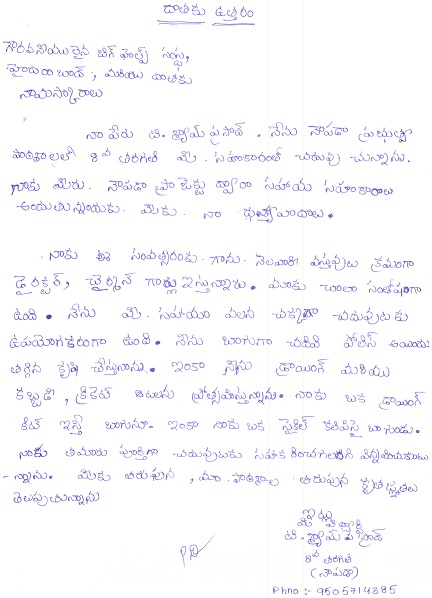 దాతకు ఉత్తరం
గౌరవనీయులైన బిగ్ హెల్ప్ సంస్థ,
హైదరాబాద్, మరియు దాతకు
నామస్కారాలు
నా పేరు టి. శ్యామ్ ప్రసాద్. నేను నౌపడా ప్రభుత్వ
పాఠశాలలో 8వ తరగతి మీ. సహకారంతో చదువు చున్నాను.
నాకు మీరు. నౌపడా ప్రాజెక్టు ద్వారా సహాయ సహకారాలు
అందుతున్నాయి. మీకు. నా ధన్యావాదాలు.
నాకు ఈ సంవత్సరంకు గాను. నెలవారీ వస్తువులు క్రమంగా
డైరక్టర్, చైర్మన్ గార్లు ఇస్తున్నారు. మాకు చాలా సంతోషంగా
ఉంది. నేను మీ. సహాయం వలన చక్కగా చదువుటకు
ఉపయోగకరంగా ఉంది. నేను బాగుగా చదివి పోలిస్ అయ్యి
తగ్గిన కృషి చేస్తునాను. ఇంకా నేను డ్రాయింగ్ మరియు
కబ్బడి, క్రికెట్ ఆటలను ప్రోత్సహిస్తున్నాను. నాకు ఒక డ్రాయింగ్
కిట్ ఇస్తే బాగును. ఇంకా నాకు ఒక సైకిల్ బాగుండు.
నాకు తమారు పూర్తిగా చదువుటకు విన్నవించుకుంటు
-న్నాను. మీకు తరుపున, మా. పాఠశాల తరుపున కృతజ్ఞతలు
తెలుపుతున్నాను
ఇట్లు
మీ విద్యార్థి
టి. శ్యామ్ ప్రసాద్
8వ తరగతి
(నౌపడా)
Phno :- 9505714385